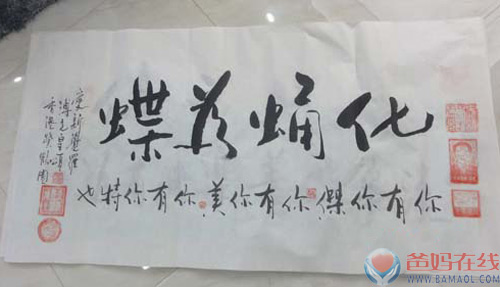 化蛹为蝶
你有你傑你有你美你有你特也
愛新覺羅
香港
爸妈在线
WWW.BAMAOL.COM